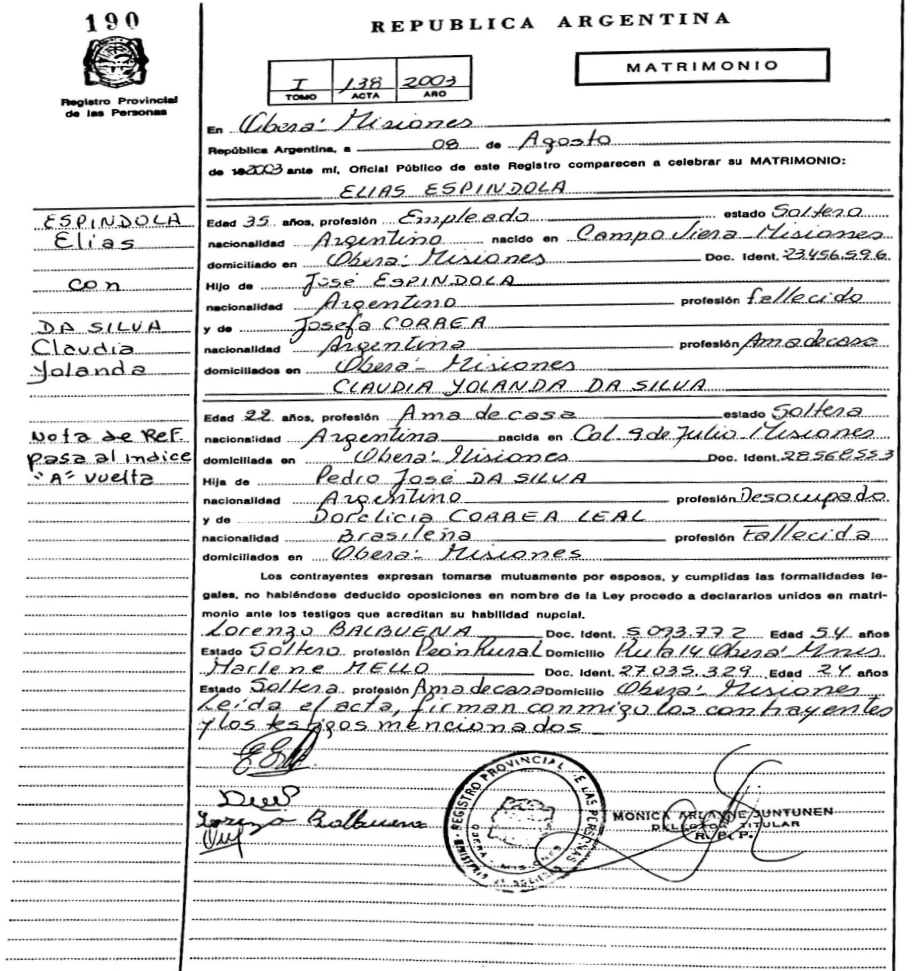 190
Registro Provincial
de las Personas
REPUBLICA ARGENTINA
I 138 2003
TOMO ACTA AÑO
MATRIMONIO
En Oberá - Misiones
República Argentina, a 08 de Agosto
de 2003 ante mí, Oficial Público de este Registro comparecen a celebrar su MATRIMONIO:
ELIAS ESPINDOLA
Edad 35 años, profesión Empleado estado Soltero
nacionalidad Argentino nacido en Campo Viera Misiones
domiciliado en Oberá - Misiones Doc. Ident. 23.456.596
Hijo de José ESPINDOLA
nacionalidad Argentino profesión fallecido
y de Josefa CORREA
nacionalidad Argentina profesión Ama de casa
domiciliados en Oberá - Misiones
CLAUDIA YOLANDA DA SILVA
Edad 22 años, profesión Ama de casa estado Soltera
nacionalidad Argentina nacida en Col. 9 de Julio Misiones
domiciliada en Oberá - Misiones Doc. Ident. 28568553
Hija de Pedro José DA SILVA
nacionalidad Argentino profesión Desocupado
y de Dorelicia CORREA LEAL
nacionalidad Brasileña profesión Fallecida
domiciliados en Oberá - Misiones
Los contrayentes expresan tomarse mutuamente por esposos, y cumplidas las formalidades le-
gales, no habiéndose deducido oposiciones en nombre de la Ley procedo a declararlos unidos en matri-
monio ante los testigos que acreditan su habilidad nupcial.
Lorenzo BALBUENA Doc. Ident. 5.093.772 Edad 54 años
Estado Soltero profesión Peón Rural Domicilio Ruta 14 Oberá Mnes
Marlene MELLO Doc. Ident. 27.035.329 Edad 24 años
Estado Soltera profesión Ama de casa Domicilio Oberá - Misiones
Leída el acta, firman conmigo los contrayentes
y los testigos mencionados
ESPINDOLA
Elias
con
DA SILVA
Claudia
Yolanda
Nota de Ref.
pasa al indice
"A" vuelta
Lorenzo Balbuena
REGISTRO PROVINCIAL DE LAS PERSONAS
OBERA - MISIONES
MONICA JUNTUNEN
TITULAR
R.P.P.